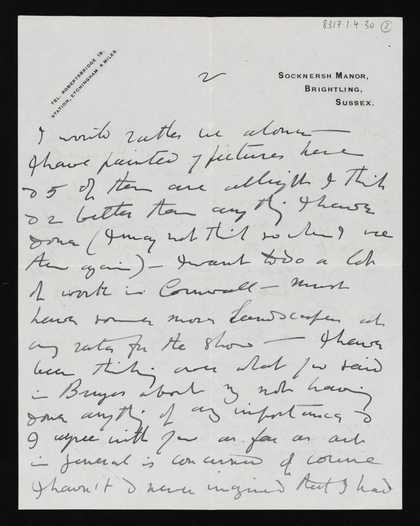 8317.1.4.30 2
TEL. ROBERTSBRIDGE 19.
STATION, ETCHINGHAM 4 MILES.
2
SOCKNERSH MANOR,
BRIGHTLING,
SUSSEX.
I would rather be alone –
I have painted 7 pictures here
& 5 of them are allright I think
& 2 better than anything I have
done (I may not think so when I see
them again) – I want to do a lot
of work in Cornwall – must
have some more landscapes at
any rate for the show – I have
been thinking over what you said
in Bruges about my not having
done anything of any importance &
I agree with you as far as art
in general is concerned of course
I haven't & never imagined that I had